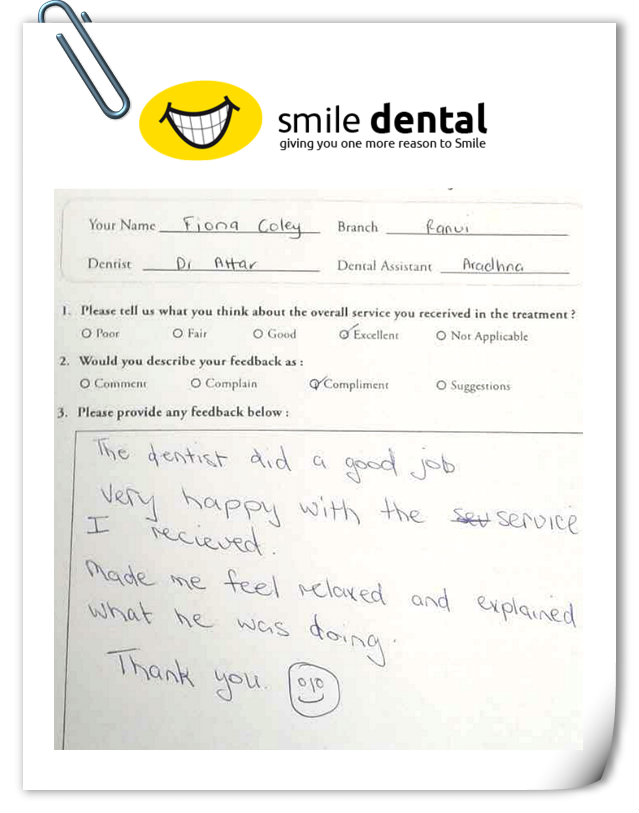 smile dental
giving you one more reason to Smile
Your Name Fiona Coley Branch Ranui
Dentist Dr Attar Dental Assistant Aradhna
1. Please tell us what you think about the overall service you recerived in the treatment ?
O Poor O Fair O Good O Excellent O Not Applicable
2. Would you describe your feedback as :
O Comment O Complain O Compliment O Suggestions
3. Please provide any feedback below :
The dentist did a good job
Very happy with the service
I recieved.
Made me feel relaxed and explained
what he was doing.
Thank you.